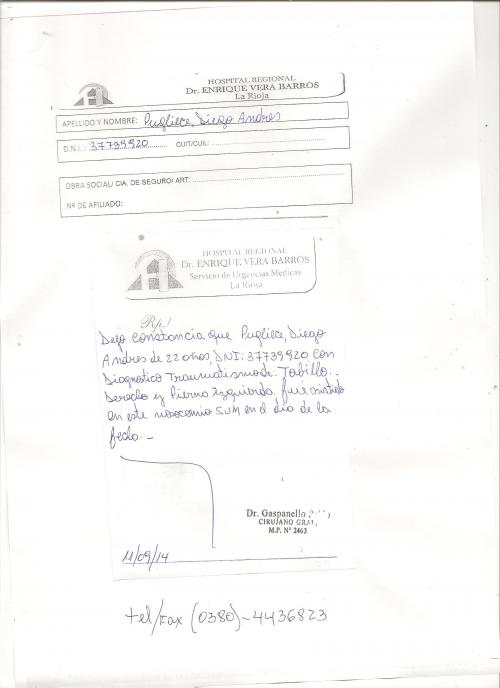 HOSPITAL REGIONAL
Dr. ENRIQUE VERA BARROS
La Rioja
APELLIDO Y NOMBRE: Pugliece, Diego Andres
D.N.I.: 37739920 CUIT/CUIL:
OBRA SOCIAL/ CIA. DE SEGURO/ ART:
Nº DE AFILIADO:
HOSPITAL REGIONAL
Dr. ENRIQUE VERA BARROS
Servicio de Urgencias Medicas
La Rioja
Rp./
Dejo constancia que Pugliece, Diego
Andres de 22 años, DNI: 37739920 con
Diagnostico Traumatismo de Tobillo
Derecho y Pierna Izquierda. fue asistido
en este nosocomio SUM en el dia de la
fecha.-
Dr. Gaspanello
CIRUJANO GRAL.
M.P. Nº 2463
11/09/14
tel/Fax (0380)-4436823